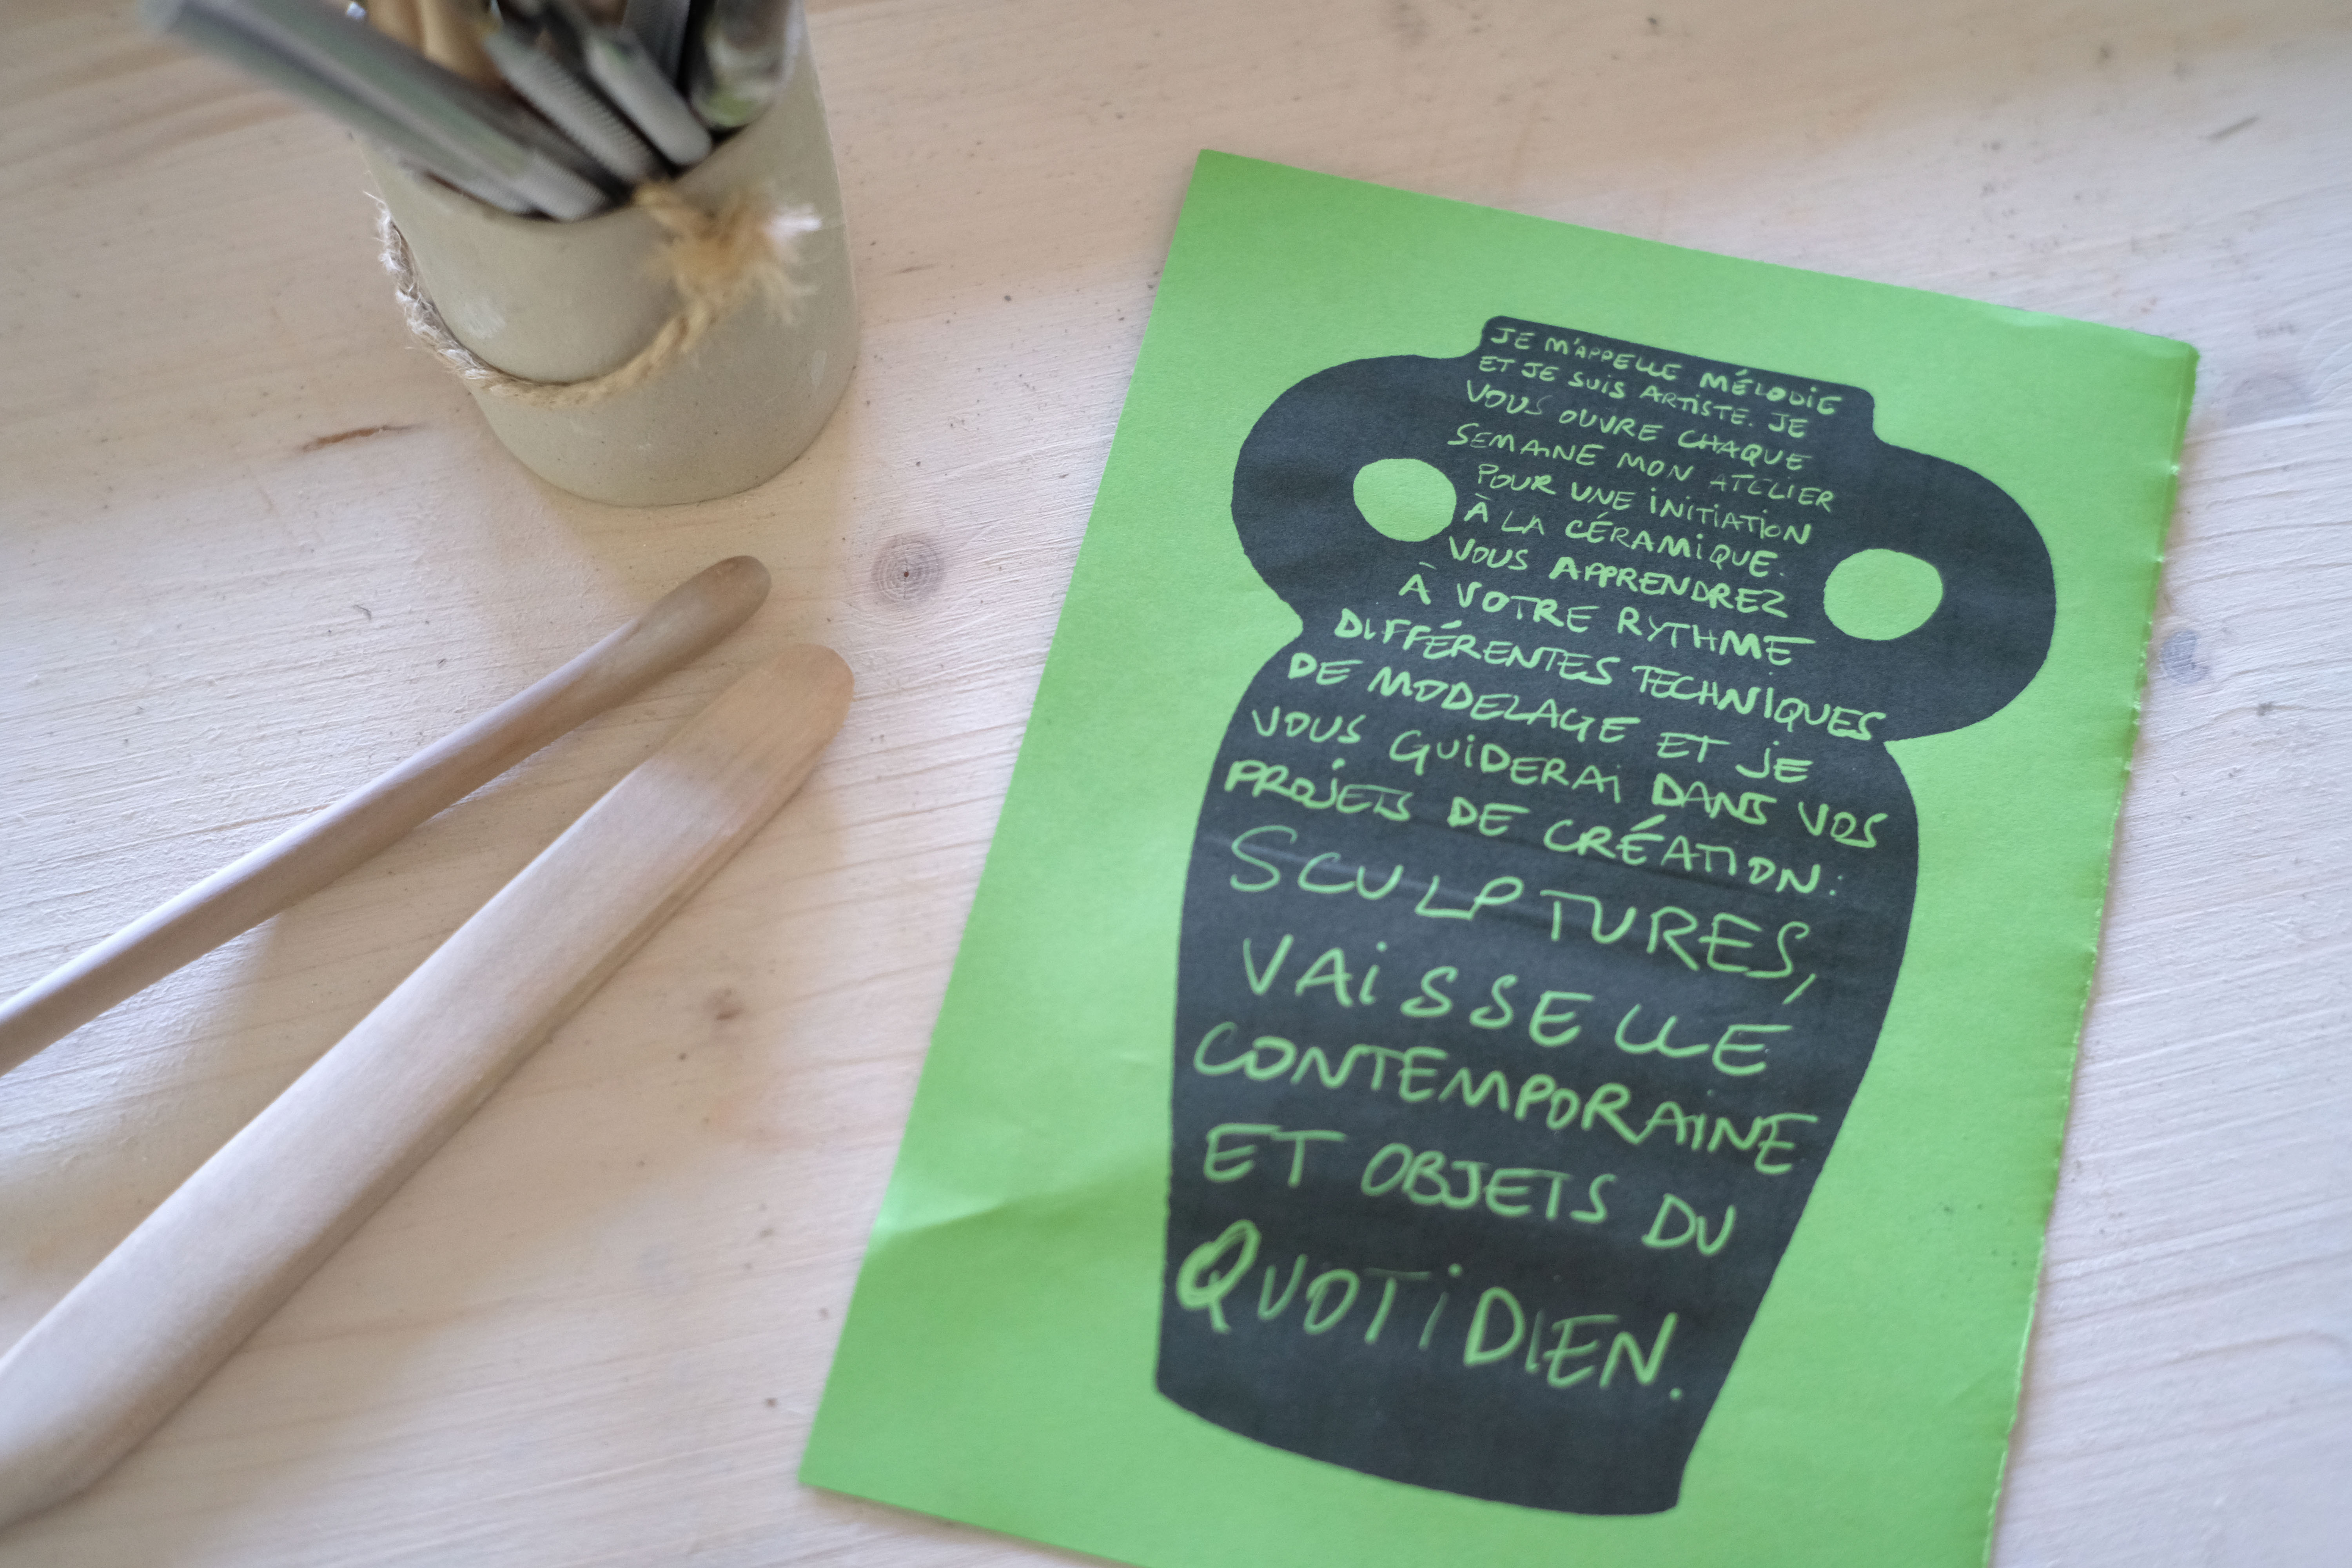 JE M'APPELLE MÉLODIE
ET JE SUIS ARTISTE. JE
VOUS OUVRE CHAQUE
SEMAINE MON ATELIER
POUR UNE INITIATION
À LA CÉRAMIQUE.
VOUS APPRENDREZ
À VOTRE RYTHME
DIFFÉRENTES TECHNIQUES
DE MODELAGE ET JE
VOUS GUIDERAI DANS VOS
PROJETS DE CRÉATION:
SCULPTURES,
VAISSELLE
CONTEMPORAINE
ET OBJETS DU
QUOTIDIEN.